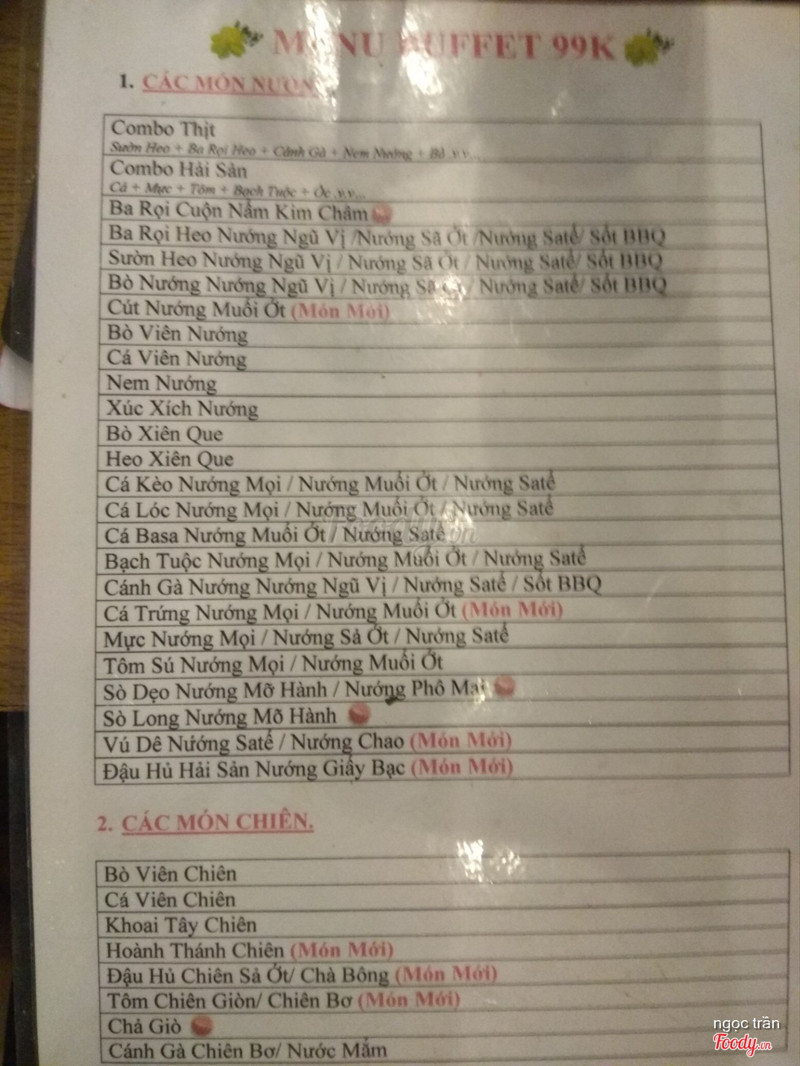 MENU BUFFET 99K
1. CÁC MÓN NƯỚN
Combo Thịt
Sườn Heo + Ba Rọi Heo + Cánh Gà + Nem Nướng + Bò .v.v...
Combo Hải Sản
Cá + Mực + Tôm + Bạch Tuộc + Ốc .v.v...
Ba Rọi Cuộn Nấm Kim Châm
Ba Rọi Heo Nướng Ngũ Vị /Nướng Sã Ớt /Nướng Satế/ Sốt BBQ
Sườn Heo Nướng Ngũ Vị / Nướng Sã Ớt / Nướng Satế/ Sốt BBQ
Bò Nướng Nướng Ngũ Vị / Nướng Sã / Nướng Satế/ Sốt BBQ
Cút Nướng Muối Ớt (Món Mới)
Bò Viên Nướng
Cá Viên Nướng
Nem Nướng
Xúc Xích Nướng
Bò Xiên Que
Heo Xiên Que
Cá Kèo Nướng Mọi / Nướng Muối Ớt / Nướng Satế
Cá Lóc Nướng Mọi / Nướng Muối Ớt / Nướng Satế
Cá Basa Nướng Muối Ớt / Nướng Satế
Bạch Tuộc Nướng Mọi / Nướng Muối Ớt / Nướng Satế
Cánh Gà Nướng Nướng Ngũ Vị / Nướng Satế / Sốt BBQ
Cá Trứng Nướng Mọi / Nướng Muối Ớt (Món Mới)
Mực Nướng Mọi / Nướng Sả Ớt / Nướng Satế
Tôm Sú Nướng Mọi / Nướng Muối Ớt
Sò Dẹo Nướng Mỡ Hành / Nướng Phô Mai
Sò Long Nướng Mỡ Hành
Vú Dê Nướng Satế / Nướng Chao (Món Mới)
Đậu Hủ Hải Sản Nướng Giấy Bạc (Món Mới)
2. CÁC MÓN CHIÊN.
Bò Viên Chiên
Cá Viên Chiên
Khoai Tây Chiên
Hoành Thánh Chiên (Món Mới)
Đậu Hủ Chiên Sả Ớt/ Chà Bông (Món Mới)
Tôm Chiên Giòn/ Chiên Bơ (Món Mới)
Chả Giò
Cánh Gà Chiên Bơ/ Nước Mắm
ngọc trần
Foody.vn